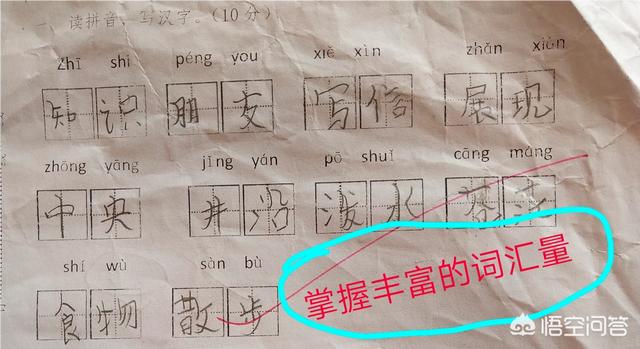 一、读拼音，写汉字。（10分）
zhī shi péng you xiě xìn zhǎn xiàn
知识 朋友 写信 展现
zhōng yāng jǐng yán pō shuǐ cāng máng
中央 井沿 泼水
shí wù sàn bù
食物 散步
掌握丰富的词汇量
悟空问答